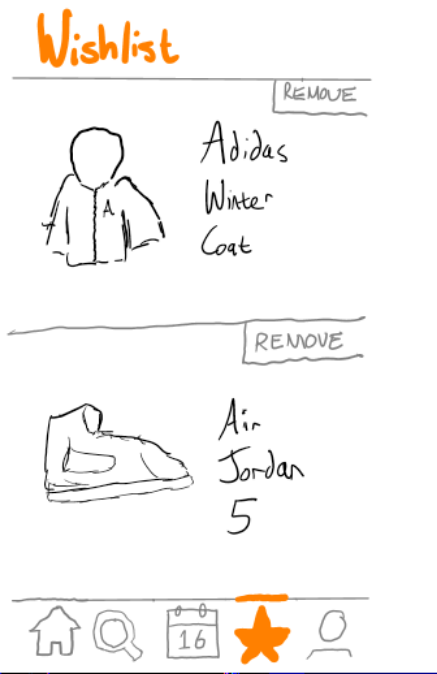 Wishlist
REMOVE
Adidas
Winter
Coat
A
REMOVE
Air
Jordan
5
16